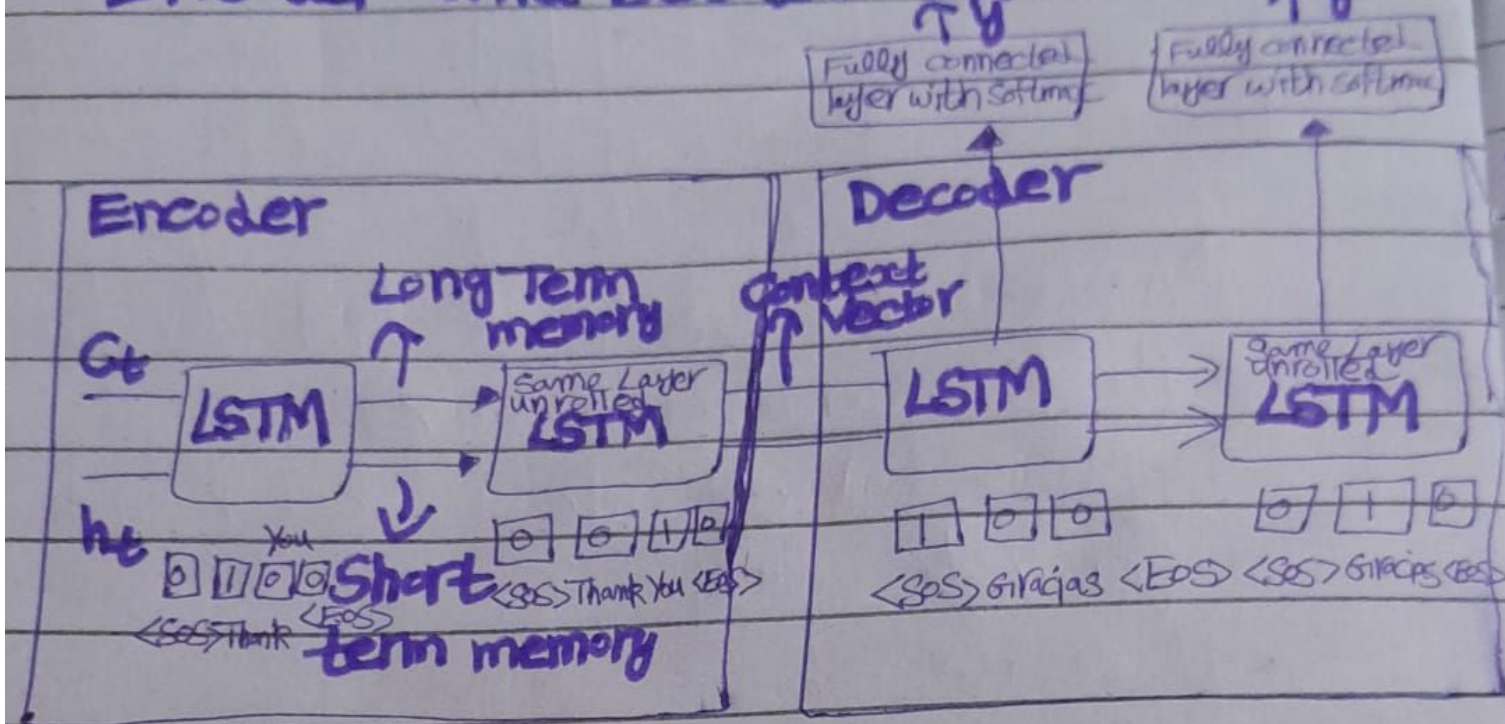 ↑ ŷ
↑ ŷ
Fully connected
layer with Softmax
Fully connected
layer with softmax
Encoder
Decoder
Long Term
memory
Context
vector
Ct
LSTM
Same Layer
unrolled
LSTM
LSTM
Same Layer
unrolled
LSTM
ht
You
0 1 0 0
<SOS> Thank
<EOS>
Short
term memory
0 0 1 0
<SOS> Thank You <EOS>
1 0 0
<SOS> Gracias <EOS>
0 1 0
<SOS> Gracias <EOS>